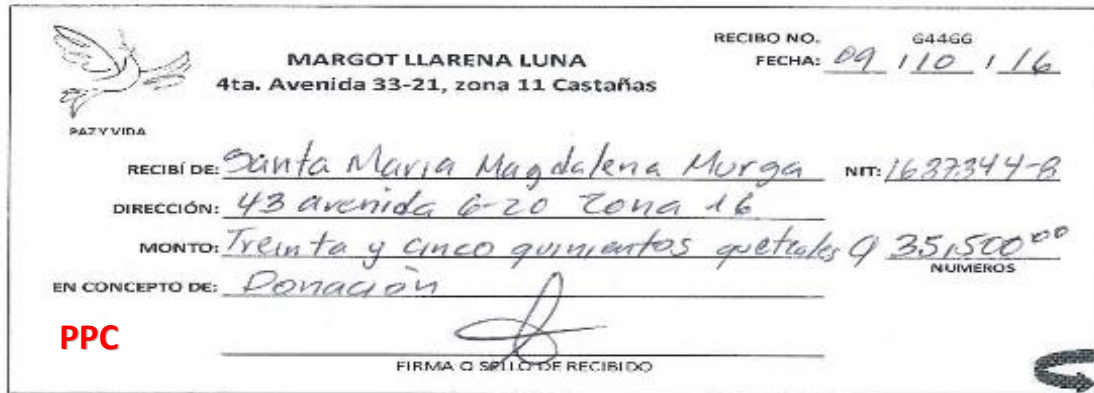 RECIBO NO. 64466
MARGOT LLARENA LUNA
FECHA: 09 / 10 / 16
4ta. Avenida 33-21, zona 11 Castañas
PAZ Y VIDA
RECIBÍ DE: Santa Maria Magdalena Murga NIT: 1637344-8
DIRECCIÓN: 43 avenida 6-20 Zona 16
MONTO: Treinta y cinco quinientos quetzales Q 35,500.00
NUMEROS
EN CONCEPTO DE: Donación
PPC
FIRMA O SELLO DE RECIBIDO